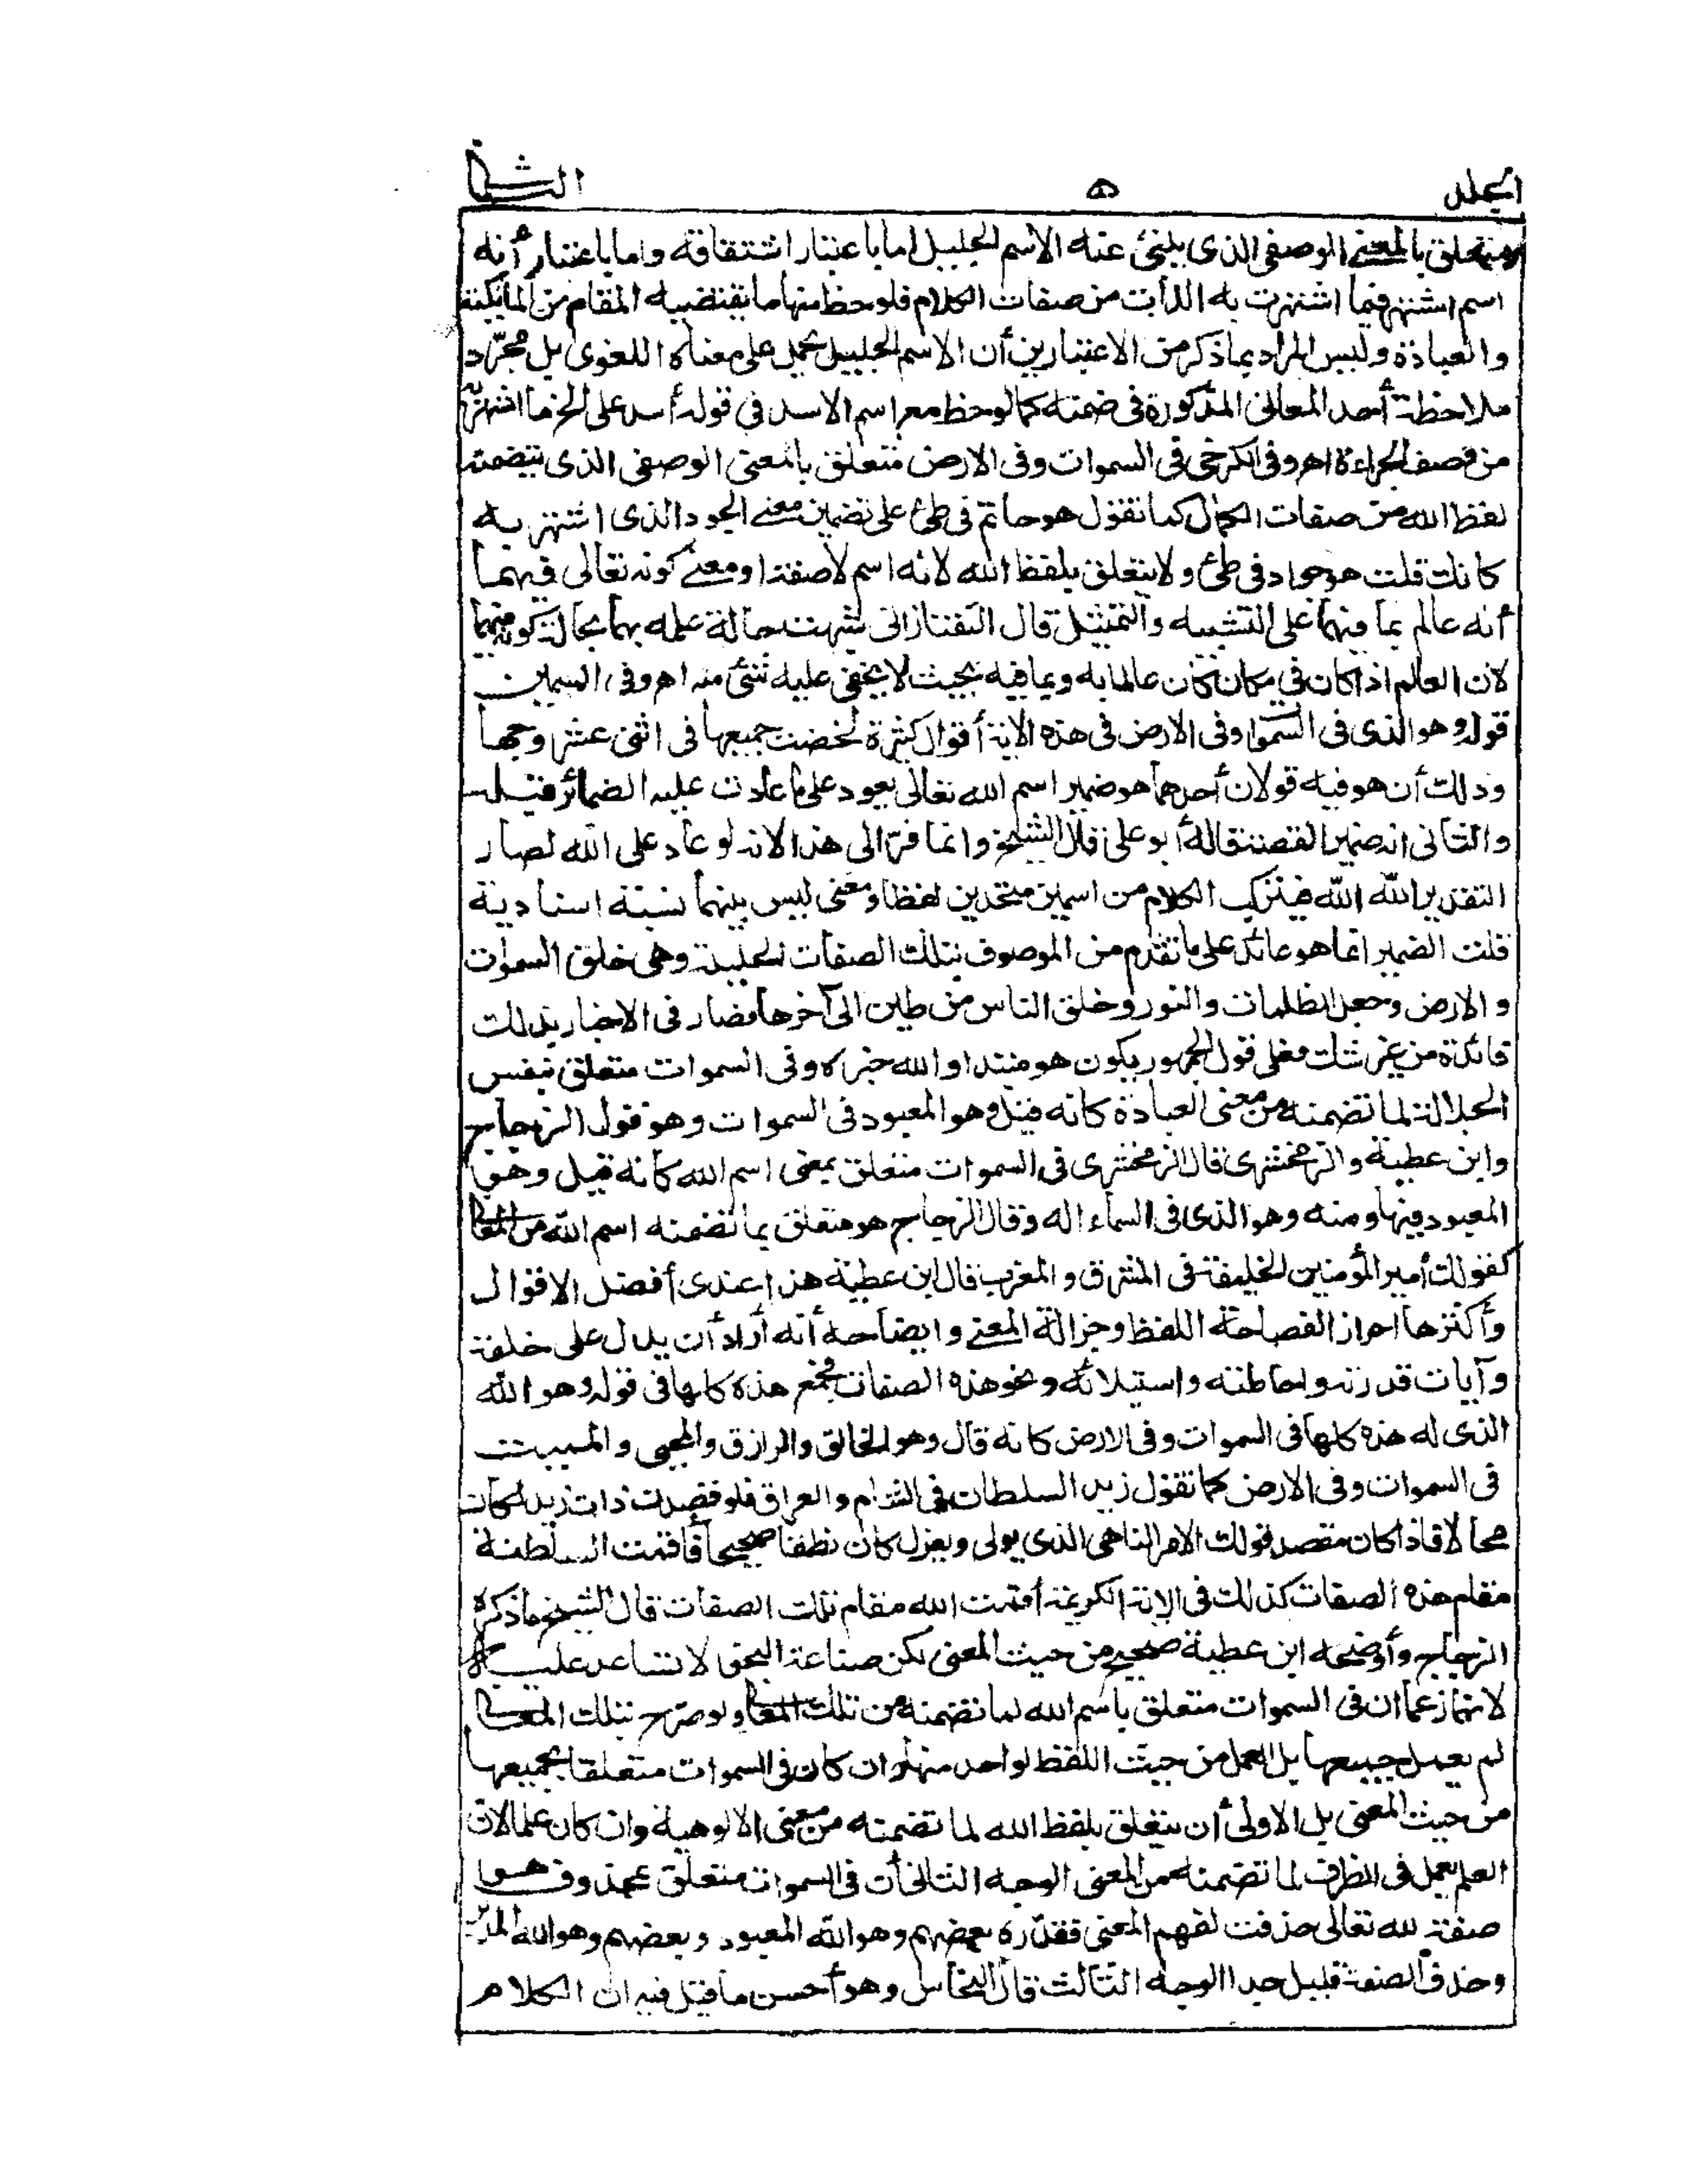 المجلد ٥ الثانى
ومتعلق بالمعنى الوصفى الذى ينبئ عنه الاسم الجليل اما باعتبار اشتقاقه واما باعتبار أنه
اسم اشتهر فيما اشتهرت به الذات من صفات الكلام فلوحظ منها ما يقتضيه المقام من المالكية
والعبادة وليس المراد بما ذكر من الاعتبارين أن الاسم الجليل يحمل على معناه اللغوى بل مجرّد
ملاحظة أحد المعانى المذكورة فى ضمنه كما لوحظ مع اسم الاسد فى قوله أسد على الخ ما اشتهر به
من وصف الجراءة اهـ وفى الكرخى فى السموات وفى الارض متعلق بالمعنى الوصفى الذى يتضمنه
لفظ الله من صفات الكمال كما تقول هو حاتم فى طئ على تضمين معنى الجود الذى اشتهر به
كانك قلت هو جواد فى طئ ولا يتعلق بلفظ الله لانه اسم لا صفة او معنى كونه تعالى فيهما
أنه عالم بما فيهما على التشبيه والتمثيل قال التفتازانى شبهت حالة علمه بهما بحالة كونه فيهما
لان العالم اذا كان فى مكان كان عالما به وبما فيه بحيث لا يخفى عليه شئ منه اهـ وفى السمين
قوله وهو الذى فى السموات وفى الارض فى هذه الاية أقوال كثيرة لخصت جميعها فى اثنى عشر وجها
وذلك أن هو فيه قولان أحدهما هو ضمير اسم الله تعالى يعود على ما عادت عليه الضمائر قبله
والثانى انه ضمير القصة قاله أبو على قال الشيخ وانما فرّ الى هذا لانه لو عاد على الله لصار
التقدير الله الله فيتركب الكلام من اسمين متحدين لفظا ومعنى ليس بينهما نسبة اسنادية
قلت الضمير انما هو عائد على ما تقدم من الموصوف بتلك الصفات الجليلة وهى خلق السموات
والارض وجعل الظلمات والنور وخلق الناس من طين الى آخرها فصار فى الاخبار بذلك
فائدة من غير شك فعلى قول الجمهور يكون هو مبتدا والله خبره وفى السموات متعلق بنفس
الجلالة لما تضمنه من معنى العبادة كانه قيل وهو المعبود فى السموات وهو قول الزجاج
وابن عطية والزمخشرى قال الزمخشرى فى السموات متعلق بمعنى اسم الله كانه قيل وهو
المعبود فيها ومنه وهو الذى فى السماء اله وقال الزجاج هو متعلق بما تضمنه اسم الله من المعانى
كقولك أمير المؤمنين الخليفة فى المشرق والمغرب قال ابن عطية هذا عندى أفضل الاقوال
وأكثرها احراز الفصاحة اللفظ وجزالة المعنى وايضاحه أنه أراد أن يدل على خلقه
وآيات قدرته واحاطته واستيلائه ونحو هذه الصفات فجمع هذه كلها فى قوله وهو الله
الذى له هذه كلها فى السموات وفى الارض كانه قال وهو الخالق والرازق والمحيى والمميت
فى السموات وفى الارض كما تقول زيد السلطان فى الشام والعراق فلو قصدت ذات زيد لكان
محالا فاذا كان مقصد قولك الامر الناهى الذى يولى ويعزل كان نطقا صحيحا فاقمت السلطنة
مقام هذه الصفات كذلك فى الاية الكريمة أقمت الله مقام تلك الصفات قال الشيخ ما ذكره
الزجاج وأوضحه ابن عطية صحيح من حيث المعنى لكن صناعة النحو لا تساعد عليه
لانهما زعما ان فى السموات متعلق باسم الله لما تضمنه من تلك المعانى ولو صرّح بتلك المعانى
لم يعمل جميعها بل العمل من حيث اللفظ لواحد منها وان كان فى السموات متعلقا بجميعها
من حيث المعنى بل الاولى أن يتعلق بلفظ الله لما تضمنه من معنى الالوهية وان كان علما لان
العلم يعمل فى الظرف لما تضمنه من المعنى الوجه الثانى أن فى السموات متعلق بمحذوف هو
صفة لله تعالى حذفت لفهم المعنى فقدّره بعضهم وهو الله المعبود وبعضهم وهو الله المدبر
وحذف الصفة قليل جدا الوجه الثالث قال النحاس وهو أحسن ما قيل فيه ان الكلام